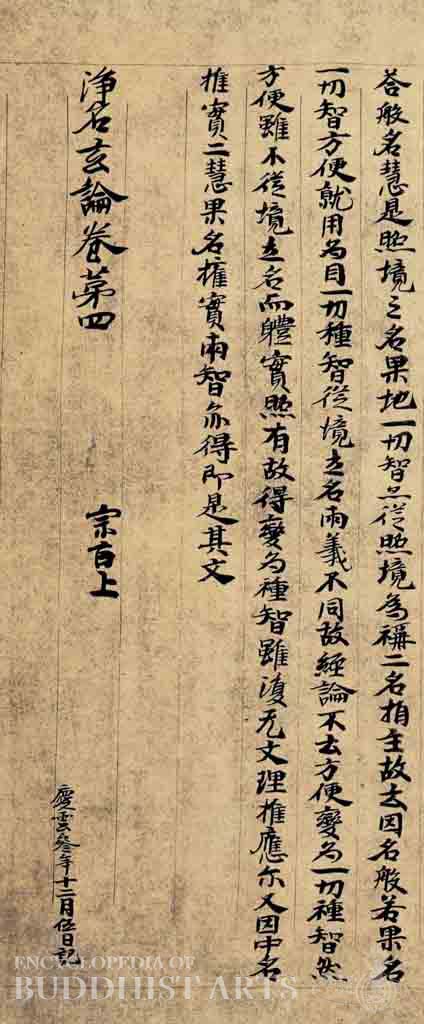 荅般名慧是照境之名果地一切智亦從照境為稱二名相主故云因名般若果名
一切智方便就用為目一切種智從境立名兩義不同故經論不云方便變為一切種智然
方便雖不從境立名而軆實照有故得變為種智雖復无文理推應尒又因中名
權實二慧果名權實兩智亦得即是其文
淨名玄論卷第四
宗百上
慶雲叁年十二月伍日記
ENCYCLOPEDIA OF
BUDDHIST ARTS